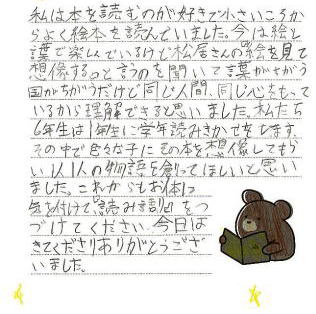 私は本を読むのが好きで小さいころか
らよく絵本を読んでいました。今は絵と
葉で楽しんでいるけど松居さんの絵を見て
想像するのと言うのを聞いて葉がちがう
国がちがうだけど同じ人間、同じ心をもって
いるから理解できると思いました。私たち
6年生は1年生に学年読みきかせをします。
その中で色々な子にその本を想像してもら
い1人1人の物語を創ってほしいと思い
ました。これからもお体に
気を付けて『読み語り』をつ
づけてください。今日は
きてくださりありがとうござ
いました。